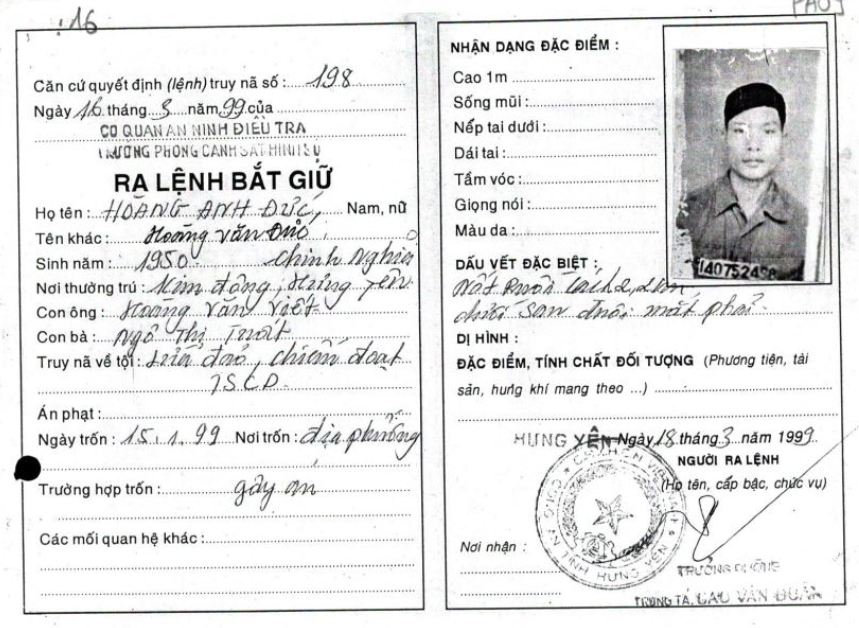 16
Căn cứ quyết định (lệnh) truy nã số : 198
Ngày 16 tháng 3 năm 99 của
CƠ QUAN AN NINH ĐIỀU TRA
TRƯỞNG PHÒNG CẢNH SÁT HÌNH SỰ
RA LỆNH BẮT GIỮ
Họ tên : HOÀNG ANH ĐỨC, Nam, nữ
Tên khác : Hoàng văn
Sinh năm : 1950 - chính Nghĩa
Nơi thường trú : Kim động, Hưng Yên
Con ông : Hoàng Văn Viết
Con bà : Ngô Thị Tuất
Truy nã về tội : Lừa đảo, chiếm đoạt
TSCD
Án phạt :
Ngày trốn : 15.1.99 Nơi trốn : địa phương
Trường hợp trốn : gây án
Các mối quan hệ khác :
NHẬN DẠNG ĐẶC ĐIỂM :
Cao 1m
Sống mũi :
Nếp tai dưới :
Dái tai :
Tầm vóc :
Giọng nói :
Màu da :
DẤU VẾT ĐẶC BIỆT :
Nốt ruồi cách 2,
sau đuôi mắt phải
DỊ HÌNH :
ĐẶC ĐIỂM, TÍNH CHẤT ĐỐI TƯỢNG (Phương tiện, tài
sản, hung khí mang theo ...)
HƯNG YÊN Ngày 18 tháng 3 năm 1999
NGƯỜI RA LỆNH
(Họ tên, cấp bậc, chức vụ)
Nơi nhận :
TRƯỞNG PHÒNG
TRUNG TÁ, CAO VĂN
CÔNG AN TỈNH HƯNG YÊN